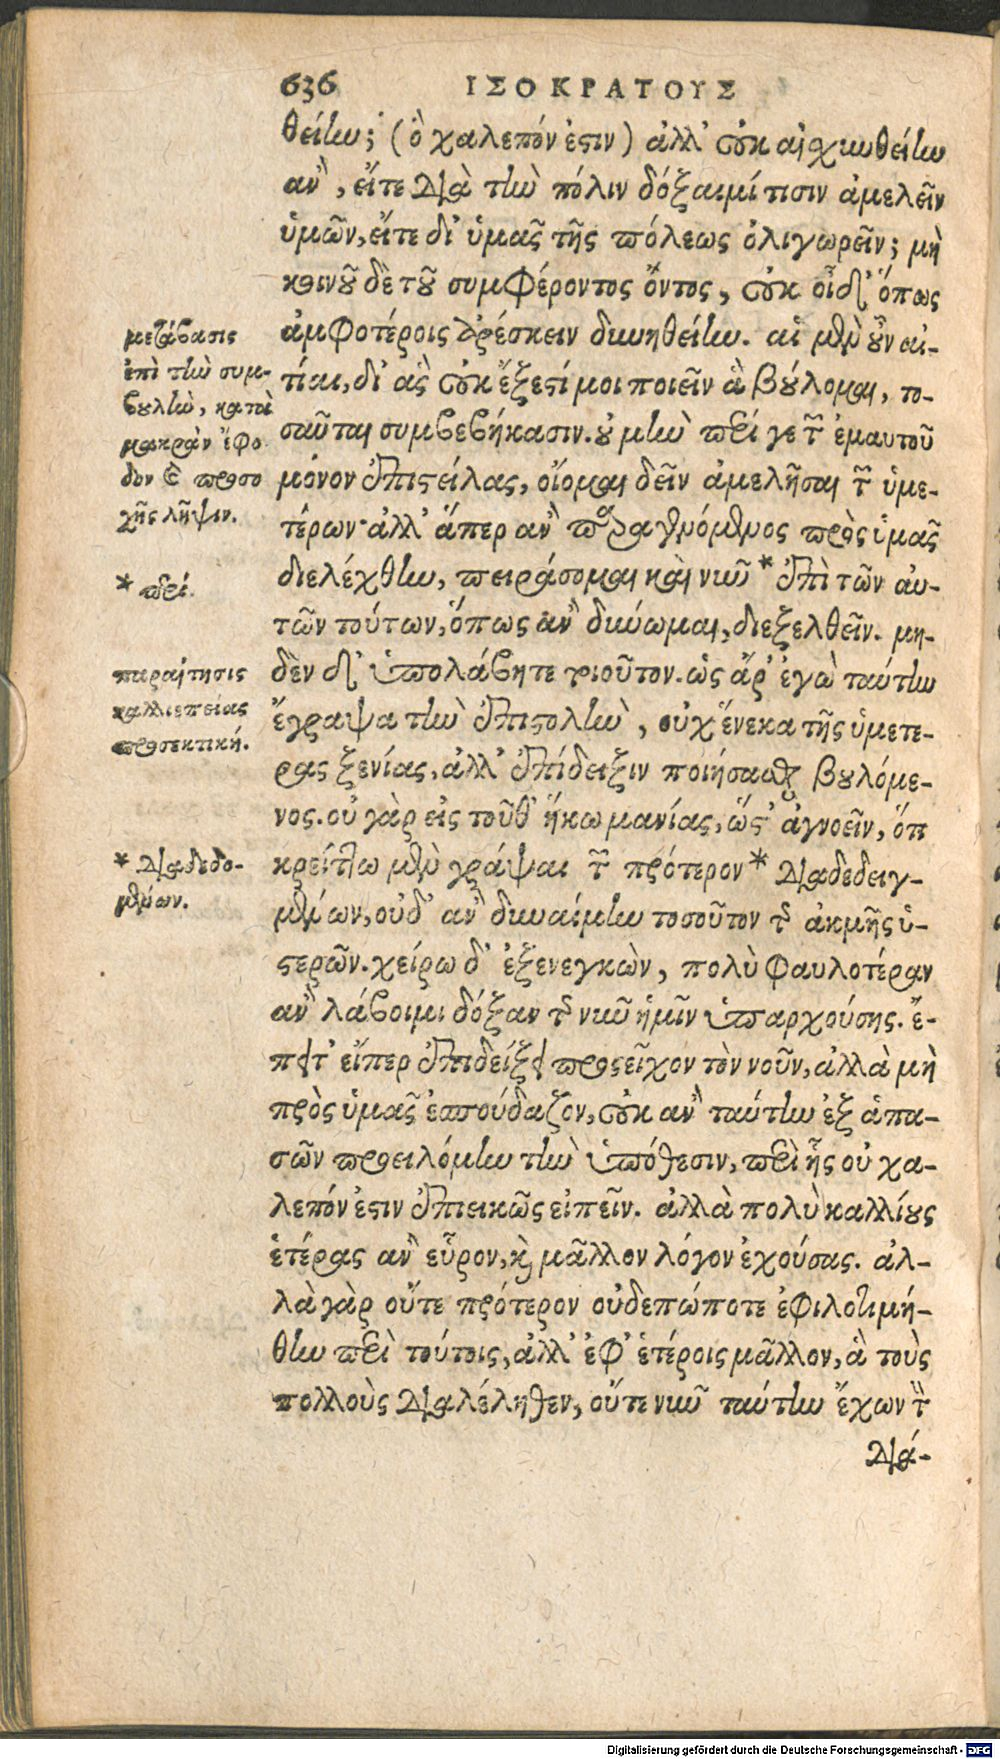 636 ΙΣΟΚΡΑΤΟΥΣ
θείην; (ὃ χαλεπόν ἐστιν) ἀλλ' οὐκ αἰσχυνθείην
ἂν, εἴτε διὰ τὴν πόλιν δόξαιμί τισιν ἀμελεῖν
ὑμῶν, εἴτε δι' ὑμᾶς τῆς πόλεως ὀλιγωρεῖν; μὴ
κοινοῦ δὲ τοῦ συμφέροντος ὄντος, οὐκ οἶδ' ὅπως
ἀμφοτέροις ἀρέσκειν δυνηθείην. αἱ μὲν οὖν αἰ-
τίαι, δι' ἃς οὐκ ἔξεστί μοι ποιεῖν ἃ βούλομαι, το-
σαῦται συμβεβήκασιν. οὐ μὴν περί γε τῶν ἐμαυτοῦ
μόνον ἐπιστείλας, οἴομαι δεῖν ἀμελῆσαι τῶν ὑμε-
τέρων· ἀλλ' ἅπερ ἂν παραγενόμενος πρὸς ὑμᾶς
διελέχθην, πειράσομαι καὶ νῦν * ἐπὶ τῶν αὐ-
τῶν τούτων, ὅπως ἂν δύνωμαι, διεξελθεῖν. μη-
δὲν δ' ὑπολάβητε τοιοῦτον. ὡς ἄρ' ἐγὼ ταύτην
ἔγραψα τὴν ἐπιστολὴν, οὐχ ἕνεκα τῆς ὑμετέ-
ρας ξενίας, ἀλλ' ἐπίδειξιν ποιήσασθαι βουλόμε-
νος. οὐ γὰρ εἰς τοῦθ' ἥκω μανίας, ὥστ' ἀγνοεῖν, ὅτι
κρείττω μὲν γράψαι τῶν πρότερον * διαδεδειγ-
μένων, οὐδ' ἂν δυναίμην τοσοῦτον τῆς ἀκμῆς ὑ-
στερῶν. χείρω δ' ἐξενεγκὼν, πολὺ φαυλοτέραν
ἂν λάβοιμι δόξαν τῆς νῦν ἡμῖν ὑπαρχούσης. ἔ-
πειτ' εἴπερ ἐπιδείξει προσεῖχον τὸν νοῦν, ἀλλὰ μὴ
πρὸς ὑμᾶς ἐσπούδαζον, οὐκ ἂν ταύτην ἐξ ἁπα-
σῶν προειλόμην τὴν ὑπόθεσιν, περὶ ἧς οὐ χα-
λεπόν ἐστιν ἐπιεικῶς εἰπεῖν. ἀλλὰ πολὺ καλλίους
ἑτέρας ἂν εὗρον, καὶ μᾶλλον λόγον ἐχούσας. ἀλ-
λὰ γὰρ οὔτε πρότερον οὐδεπώποτε ἐφιλοτιμή-
θην περὶ τούτοις, ἀλλ' ἐφ' ἑτέροις μᾶλλον, ἃ τοὺς
πολλοὺς διαλέληθεν, οὔτε νῦν ταύτην ἔχων τὴν
διά-
μετάβασις
ἐπὶ τὴν συμ-
βουλὴν, κατὰ
μακρὰν ἔφο-
δον καὶ προσο
χῆς λῆψιν.
* περί.
παραίτησις
καλλιεπείας
προσεκτική.
* διαδεδο-
μένων.
Digitalisierung gefördert durch die Deutsche Forschungsgemeinschaft - DFG